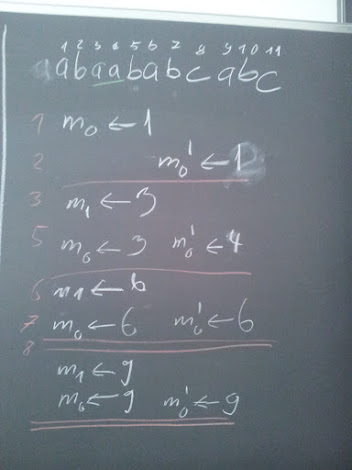 1 2 3 4 5 6 7 8 9 10 11
abaababcabc
1 m₀ ← 1
2 m₀' ← 1
3 m₁ ← 3
5 m₀ ← 3 m₀' ← 4
6 m₁ ← 6
7 m₀ ← 6 m₀' ← 6
8
m₁ ← 9
m₀ ← 9 m₀' ← 9